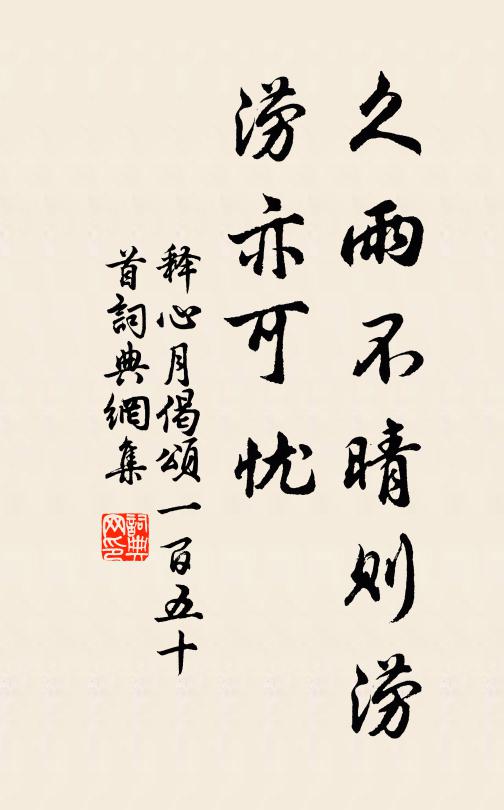 久雨不晴则涝
涝亦可忧
释心月偈頌一百五十
首詞典網集
詞典
网印